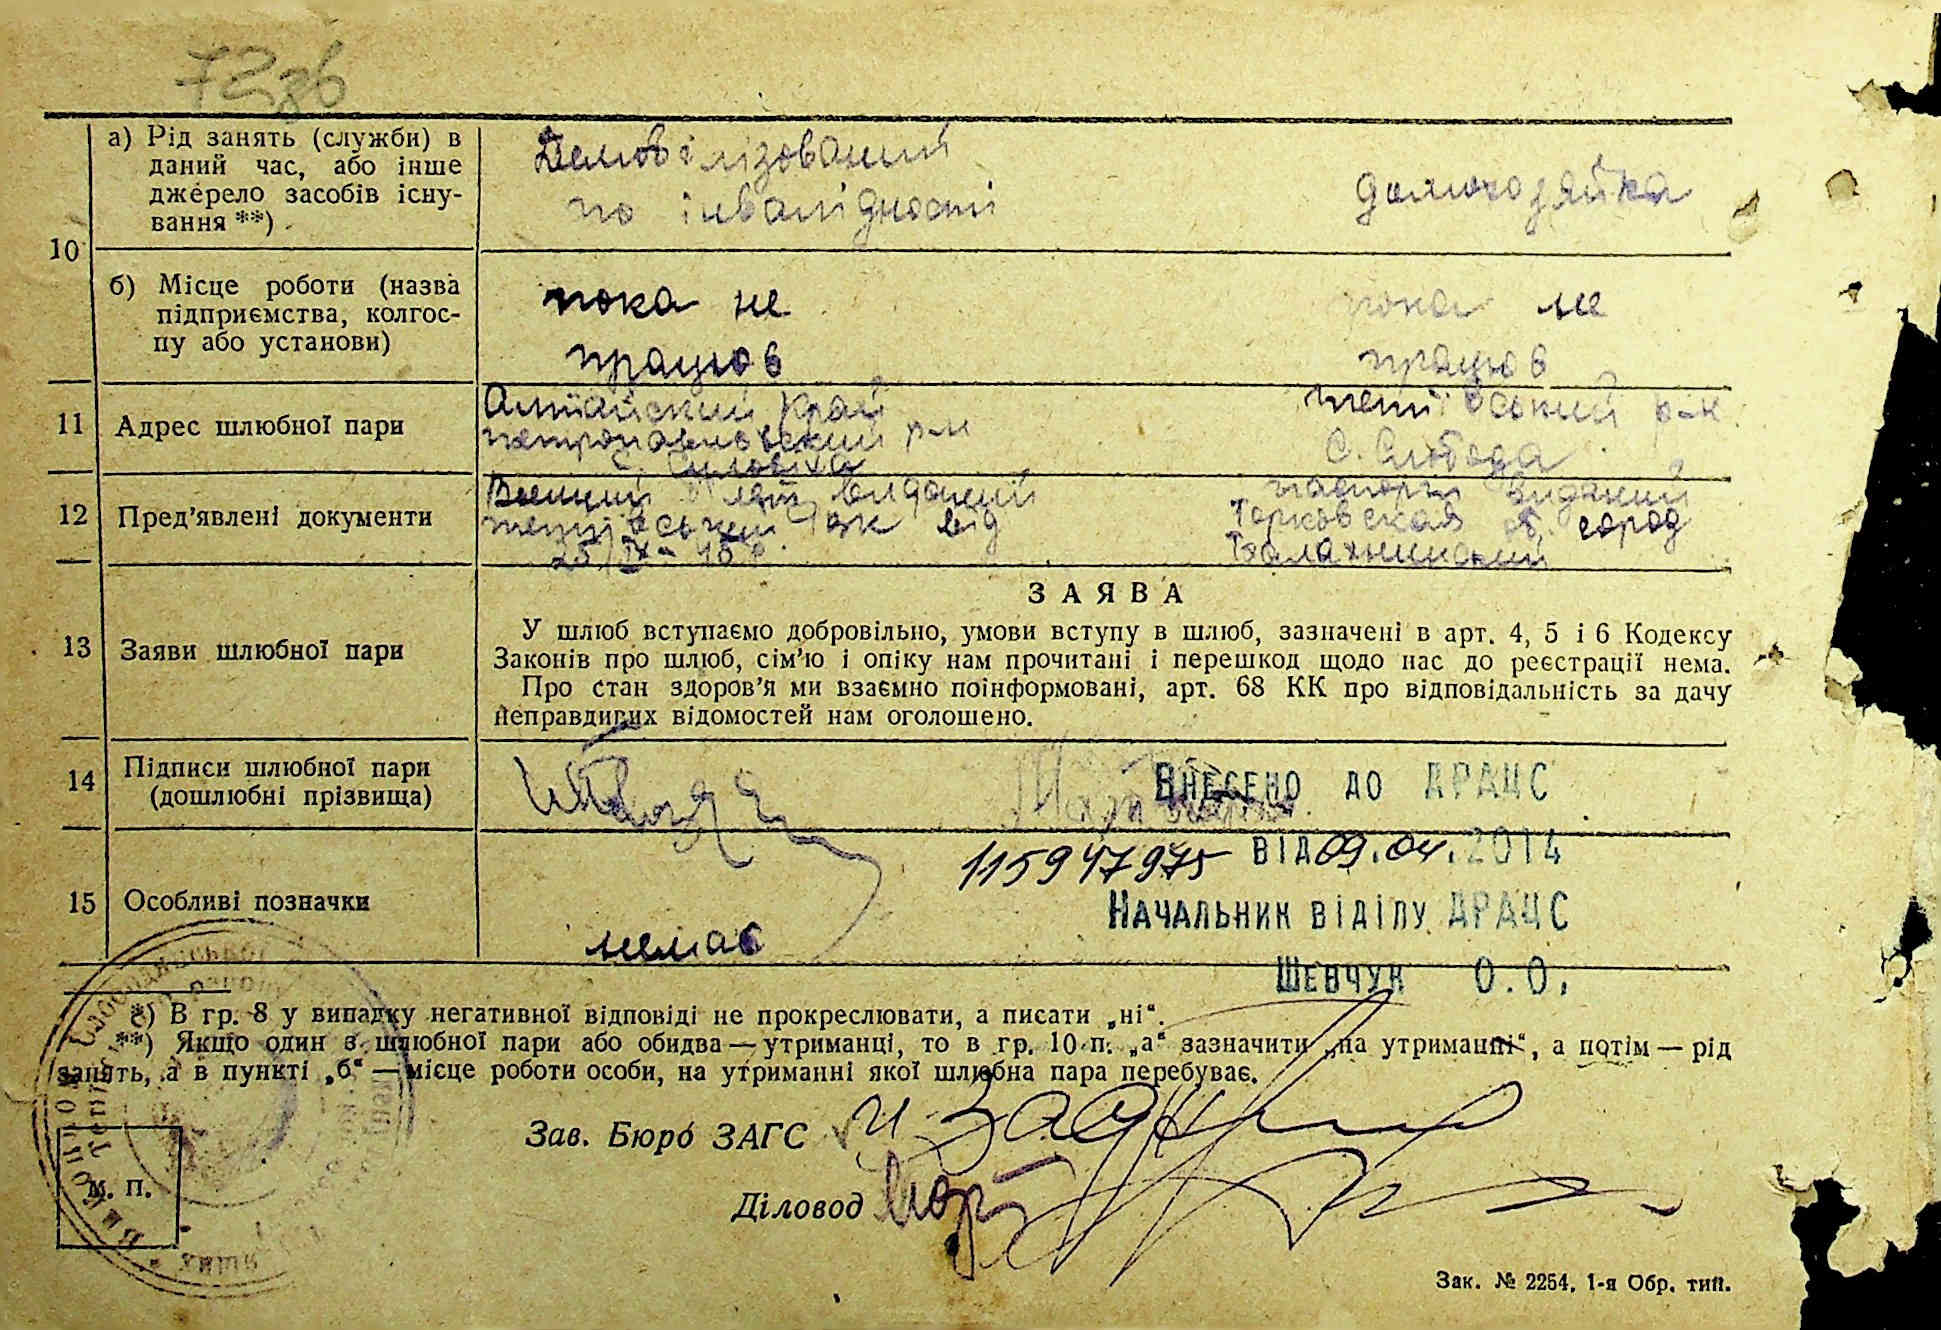 72зв
а) Рід занять (служби) в
даний час, або інше
джерело засобів існу-
вання **)
Демобілізований
по інвалідності
домохозяйка
10
б) Місце роботи (назва
підприємства, колгос-
пу або установи)
пока не
працює
пока не
працює
11 Адрес шлюбної пари
Алтайский край
петропавловский р-н
с.
р-н
С. Слобода
12 Пред'явлені документи
Воений білет виданий
від
25/IX-45 р.
паспорт виданий
Горковская об. город
Балахнинский
ЗАЯВА
13 Заяви шлюбної пари
У шлюб вступаємо добровільно, умови вступу в шлюб, зазначені в арт. 4, 5 і 6 Кодексу
Законів про шлюб, сім'ю і опіку нам прочитані і перешкод щодо нас до реєстрації нема.
Про стан здоров'я ми взаємно поінформовані, арт. 68 КК про відповідальність за дачу
неправдивих відомостей нам оголошено.
14 Підписи шлюбної пари
(дошлюбні прізвища)
Внесено до ДРАЦС
115947975 від 09.04.2014
15 Особливі позначки
немає
Начальник відділу ДРАЦС
Шевчук О.О.
*) В гр. 8 у випадку негативної відповіді не прокреслювати, а писати „ні“.
**) Якщо один з шлюбної пари або обидва — утриманці, то в гр. 10 п. „а“ зазначити „на утриманні“, а потім — рід
занять, а в пункті „б“ — місце роботи особи, на утриманні якої шлюбна пара перебуває.
Зав. Бюро ЗАГС
Діловод
М. П.
Зак. № 2254, 1-я Обр. тип.